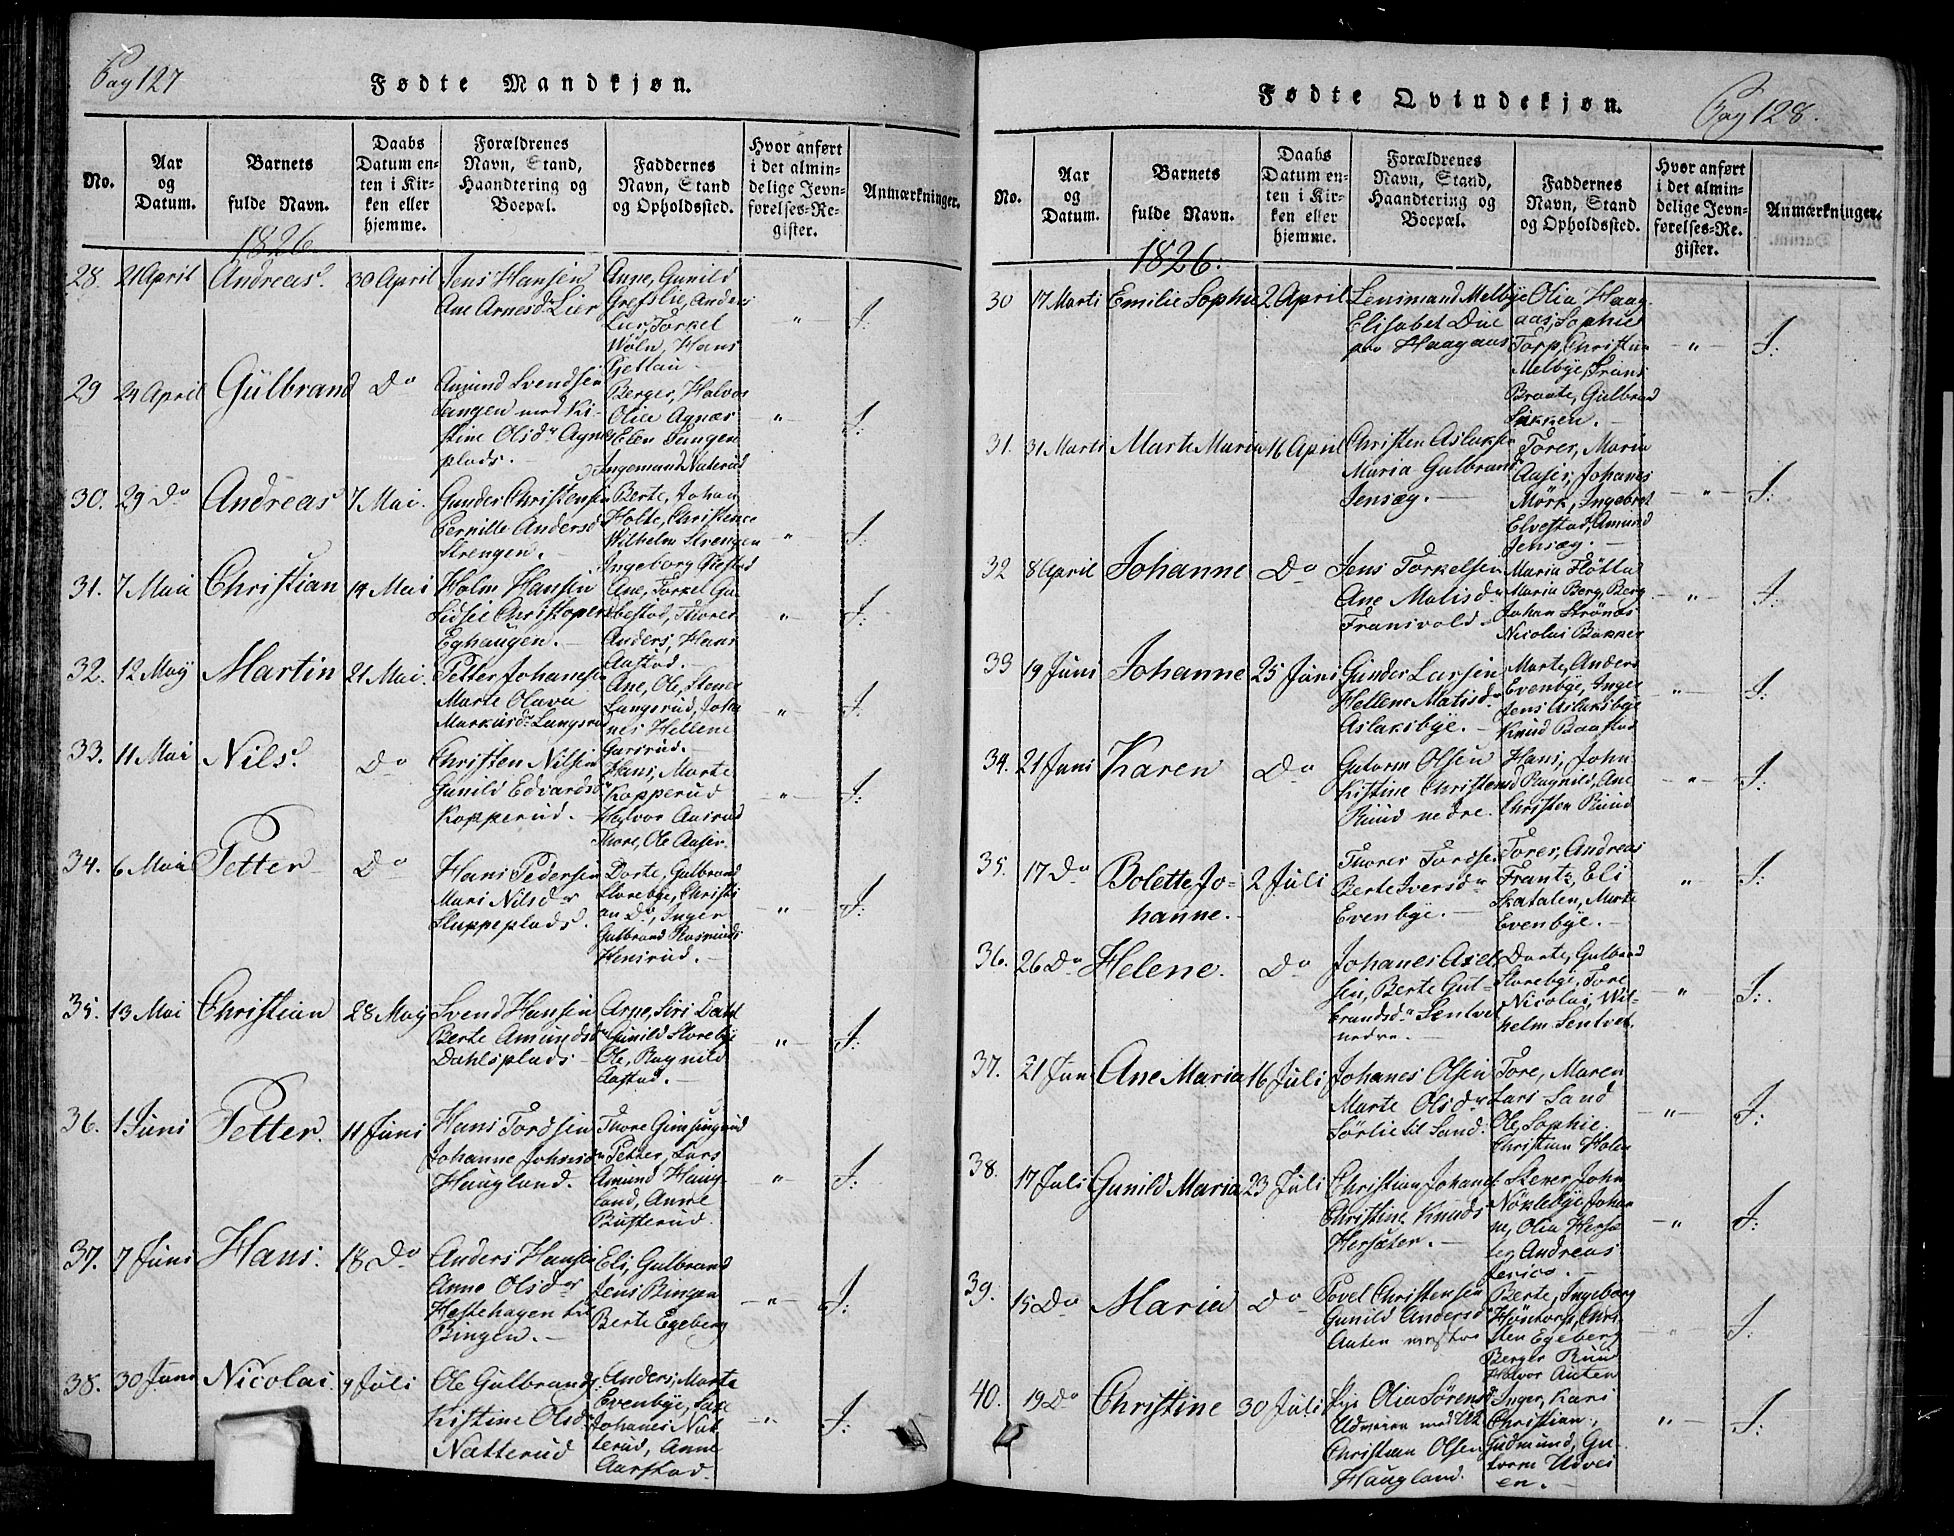 Pag 127
Fødte Mandkjøn.
No.
Aar
og
Datum.
Barnets
fulde Navn.
Daabs
Datum en-
ten i Kir-
ken eller
hjemme.
Forældrenes
Navn, Stand,
Haandtering og
Boepæl.
Faddernes
Navn, Stand
og Opholdssted.
Hvor anført
i det almin-
delige Jevn-
førelses-Re-
gister.
Anmærkninger.
1826
28. 21 April Andreas. 30 April
Jens Hansen
Ane Arnesdr Lier
Anne, Gunild
Grefslie, Anders
Lier, Torkel
Wøln, Hans
Gjellau
" S:
29 24 April Gulbrand Do
Amund Svendsen
Tangen med Ki-
stine Olsdr Agnes
plads.
Berger, Halvor
Olia Agnæs
Elen Tangen
Ingemand Naterud
" S:
30. 29 Do Andreas 7 Mai.
Gunder Christensen
Pernille Andersd
Strengen.
Berte, Johan
Holte, Christence
Wilhelm Strengen
Ingeborg
" S:
31. 7 Mai Christian 14 Mai
Holm Hansen
Lidsei Christopers
Eghaugen.
Ane, Torkel Gu-
bestad, Thorer
Anders, Hans
Aastad.
" S:
32. 12 May Martin 21 Mai.
Petter Johanesen
Marte Olava
Markusdr Langsrud
Ane, Ole, Stener
Langsrud, Joha
nes Hellene
Garsrud.
" S:
33. 11 Mai Nils. Do
Christen Nilsen
Gunild Edvardsdr
Kopperud.
Hans, Marte
Kopperud
Halvor Aasrud
Thore, Ole Aaser.
" S:
34. 6 Mai Petter Do
Hans Pedersen
Mari Nilsdr
Sluppeplads.
Dorte, Gulbrand
Storebye, Christi
an Do, Inger
Gulbrand Rasmus
Hensrud.
" S:
35. 13 Mai Christian 28 May
Svend Hansen
Berte Amundsdr
Dahlsplads
Arne, Siri Dahl
Gunild Storebye
Ole, Ragnild
Aastad.
" S:
36. 1 Juni Petter. 11 Juni
Hans Tordsen
Johanne Johnsdr
Haugland.
Thore Gimsingrud
Petter, Lars
Amund Haug-
land, Anne
Busterud.
" S:
37. 7 Juni Hans. 18 Do
Anders Hansen
Anne Olsdr
Hestehagen til
Bingen.
Eli, Gulbrand
Jens Bingen
Berte Egeberg
" S:
38. 30 Juni Nicolai. 9 Juli
Ole Gulbrands
Kistine Olsdr
Natterud
Anders, Marte
Evenbye,
Johanes Nat
terud, Anne
Aarstad.
" S:
Pag 128.
Fødte Qvindekjøn.
No.
Aar
og
Datum.
Barnets
fulde Navn.
Daabs
Datum en-
ten i Kir-
ken eller
hjemme.
Forældrenes
Navn, Stand,
Haandtering og
Boepæl.
Faddernes
Navn, Stand
og Opholdssted.
Hvor anført
i det almin-
delige Jevn-
førelses-Re-
gister.
Anmærkninger.
1826.
30 17 Marti Emilie Sophie 2 April
Lensmand Melbye
Elisabet Due
paa Haagaas
Olia Haag
aas, Sophie
Torp, Christin
Melbye, Frans
Braate, Gulbrand
Sikken.
" S:
31. 31 Marti Marte Maria 16 April
Christen Aslaksen
Maria Gulbrands
Jensæg.
Torer, Maria
Aaser, Johanes
Mörk, Ingebret
Elvestad, Amund
Jensæg.
" S:
32 8 April Johanne Do
Jens Torkelsen
Ane Matisdr
Fransvold.
Maria Flöttad
Maria Berg, Berg
Johan Strönes
Nicolai Bakker
" S:
33 19 Juni Johanne 25 Juni
Gunder Larsen
Hellene Matisdr
Aslaksbye.
Marte, Anders
Evenbye, Inger
Jens Aslaksbye
Knud Baastad
" S:
34. 21 Juni Karen Do
Gutorm Olsen
Kistine Christensd
Ruud nedre.
Hans, John
Ragnild, Ane
Christen Ruud
" S:
35. 17 Do Bolette Jo-
hanne. 2 Juli
Thorer Tordsen
Berte Iversdr
Evenbye.
Torer, Andreas
Frantz, Eli
Skatalen, Marte
Evenbye.
" S:
36. 26 Do Helene. Do
Johanes Axel
sen, Berte Gut-
brandsdr Sentvet
nedre.
Dorte, Gulbrand
Storebye, Tore
Nicolai, Wil-
helm Sentvet.
" S:
37. 21 Jun Ane Maria 16 Juli
Johanes Olsen
Marte Olsdr
Sörlie til Sand.
Tore, Maren
Lars Sand
Ole, Sophie
Christian Holen
" S:
38. 17 Juli Gunild Maria 23 Juli
Christian Johanes
Christine Knuds
Hersæter.
Stener, John
Nöklebye, Johan
ne, Olia Hersæ
ter, Andreas
Jerico.
" S:
39. 15 Do Maria Do
Povel Christensen
Gunild Andersdr
Auten vestre
Berte, Ingeborg
Höntorp, Chri
sten Egeberg
Berger Ruud
Halvor Auten
" S:
40. 19 Do Christine 30 Juli
Pige Olia Sörensd
Udveien med
Christian Olsen
Haugland.
Inger, Kari
Christian,
Gudmund, Gu-
torm Udvei
en.
" S: